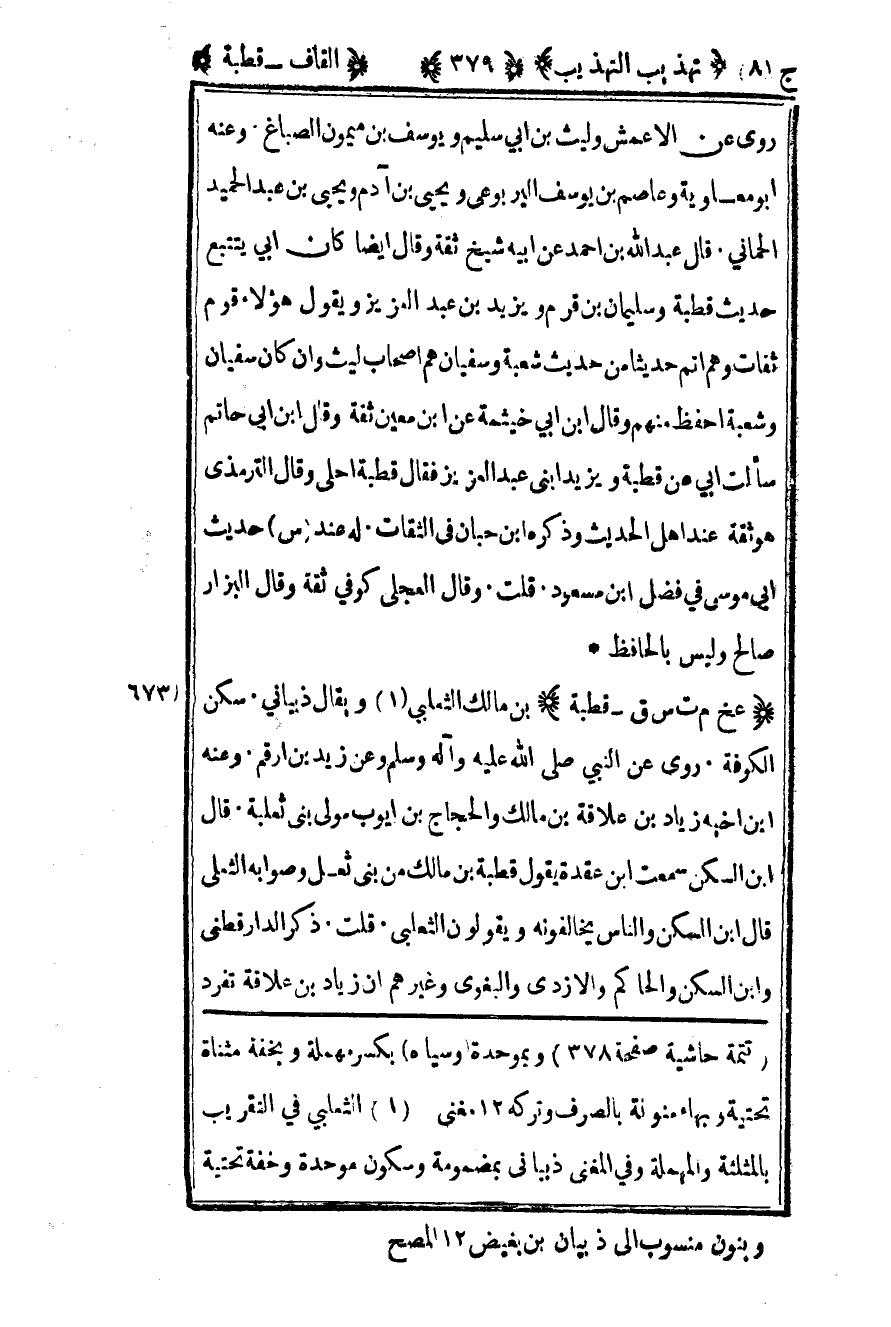 ج (٨) ﴿ تهذيب التهذيب ﴾ ﴿ ٣٧٩ ﴾ ﴿ القاف ــ قطبة ﴾
روى عن الاعمش وليث بن ابي سليم و يوسف بن ميمون الصباغ · وعنه
ابو معاوية وعاصم بن يوسف اليربوعى ويحيى بن آدم ويحيى بن عبد الحميد
الحماني · قال عبد الله بن احمد عن ابيه شيخ ثقة وقال ايضا كان ابي يتتبع
حديث قطبة وسليمان بن قرم و يزيد بن عبد العزيز و يقول هؤلاء قوم
ثقات وهم اتم حديثا من حديث شعبة وسفيان هم اصحاب ليث وان كان سفيان
وشعبة احفظ منهم وقال ابن ابي خيثمة عن ابن معين ثقة وقال ابن ابي حاتم
سألت ابي عن قطبة و يزيد ابنى عبد العزيز فقال قطبة احلى وقال الترمذى
هو ثقة عند اهل الحديث وذكره ابن حبان فى الثقات · له عند (س) حديث
ابي موسى في فضل ابن مسعود · قلت · وقال العجلى كوفي ثقة وقال البزار
صالح وليس بالحافظ *
(٦٧٣ ﴿ عخ م ت س ق ــ قطبة ﴾ بن مالك الثعلبي (١) و يقال ذبياني · سكن
الكوفة · روى عن النبي صلى الله عليه وآله وسلم وعن زيد بن ارقم · وعنه
ابن اخيه زياد بن علاقة بن مالك والحجاج بن ايوب مولى بنى ثعلبة · قال
ابن السكن سمعت ابن عقدة يقول قطبة بن مالك من بنى ثعل وصوابه الثعلى
قال ابن السكن والناس يخالفونه و يقولون الثعلبى · قلت · ذكر الدارقطنى
وابن السكن والحاكم والازدى والبغوى وغيرهم ان زياد بن علاقة تفرد
( تتمة حاشية صفحة ٣٧٨ ) و بموحدة (وسياه) بكسر مهملة و بخفة مثناة
تحتية و بهاء منونة بالصرف وتركه ١٢ مغنى (١) الثعلبي في التقريب
بالمثلثة والمهملة وفي المغنى ذبيانى بمضمومة وسكون موحدة وخفة تحتية
و بنون منسوب الى ذبيان بن بغيض ١٢ المصح